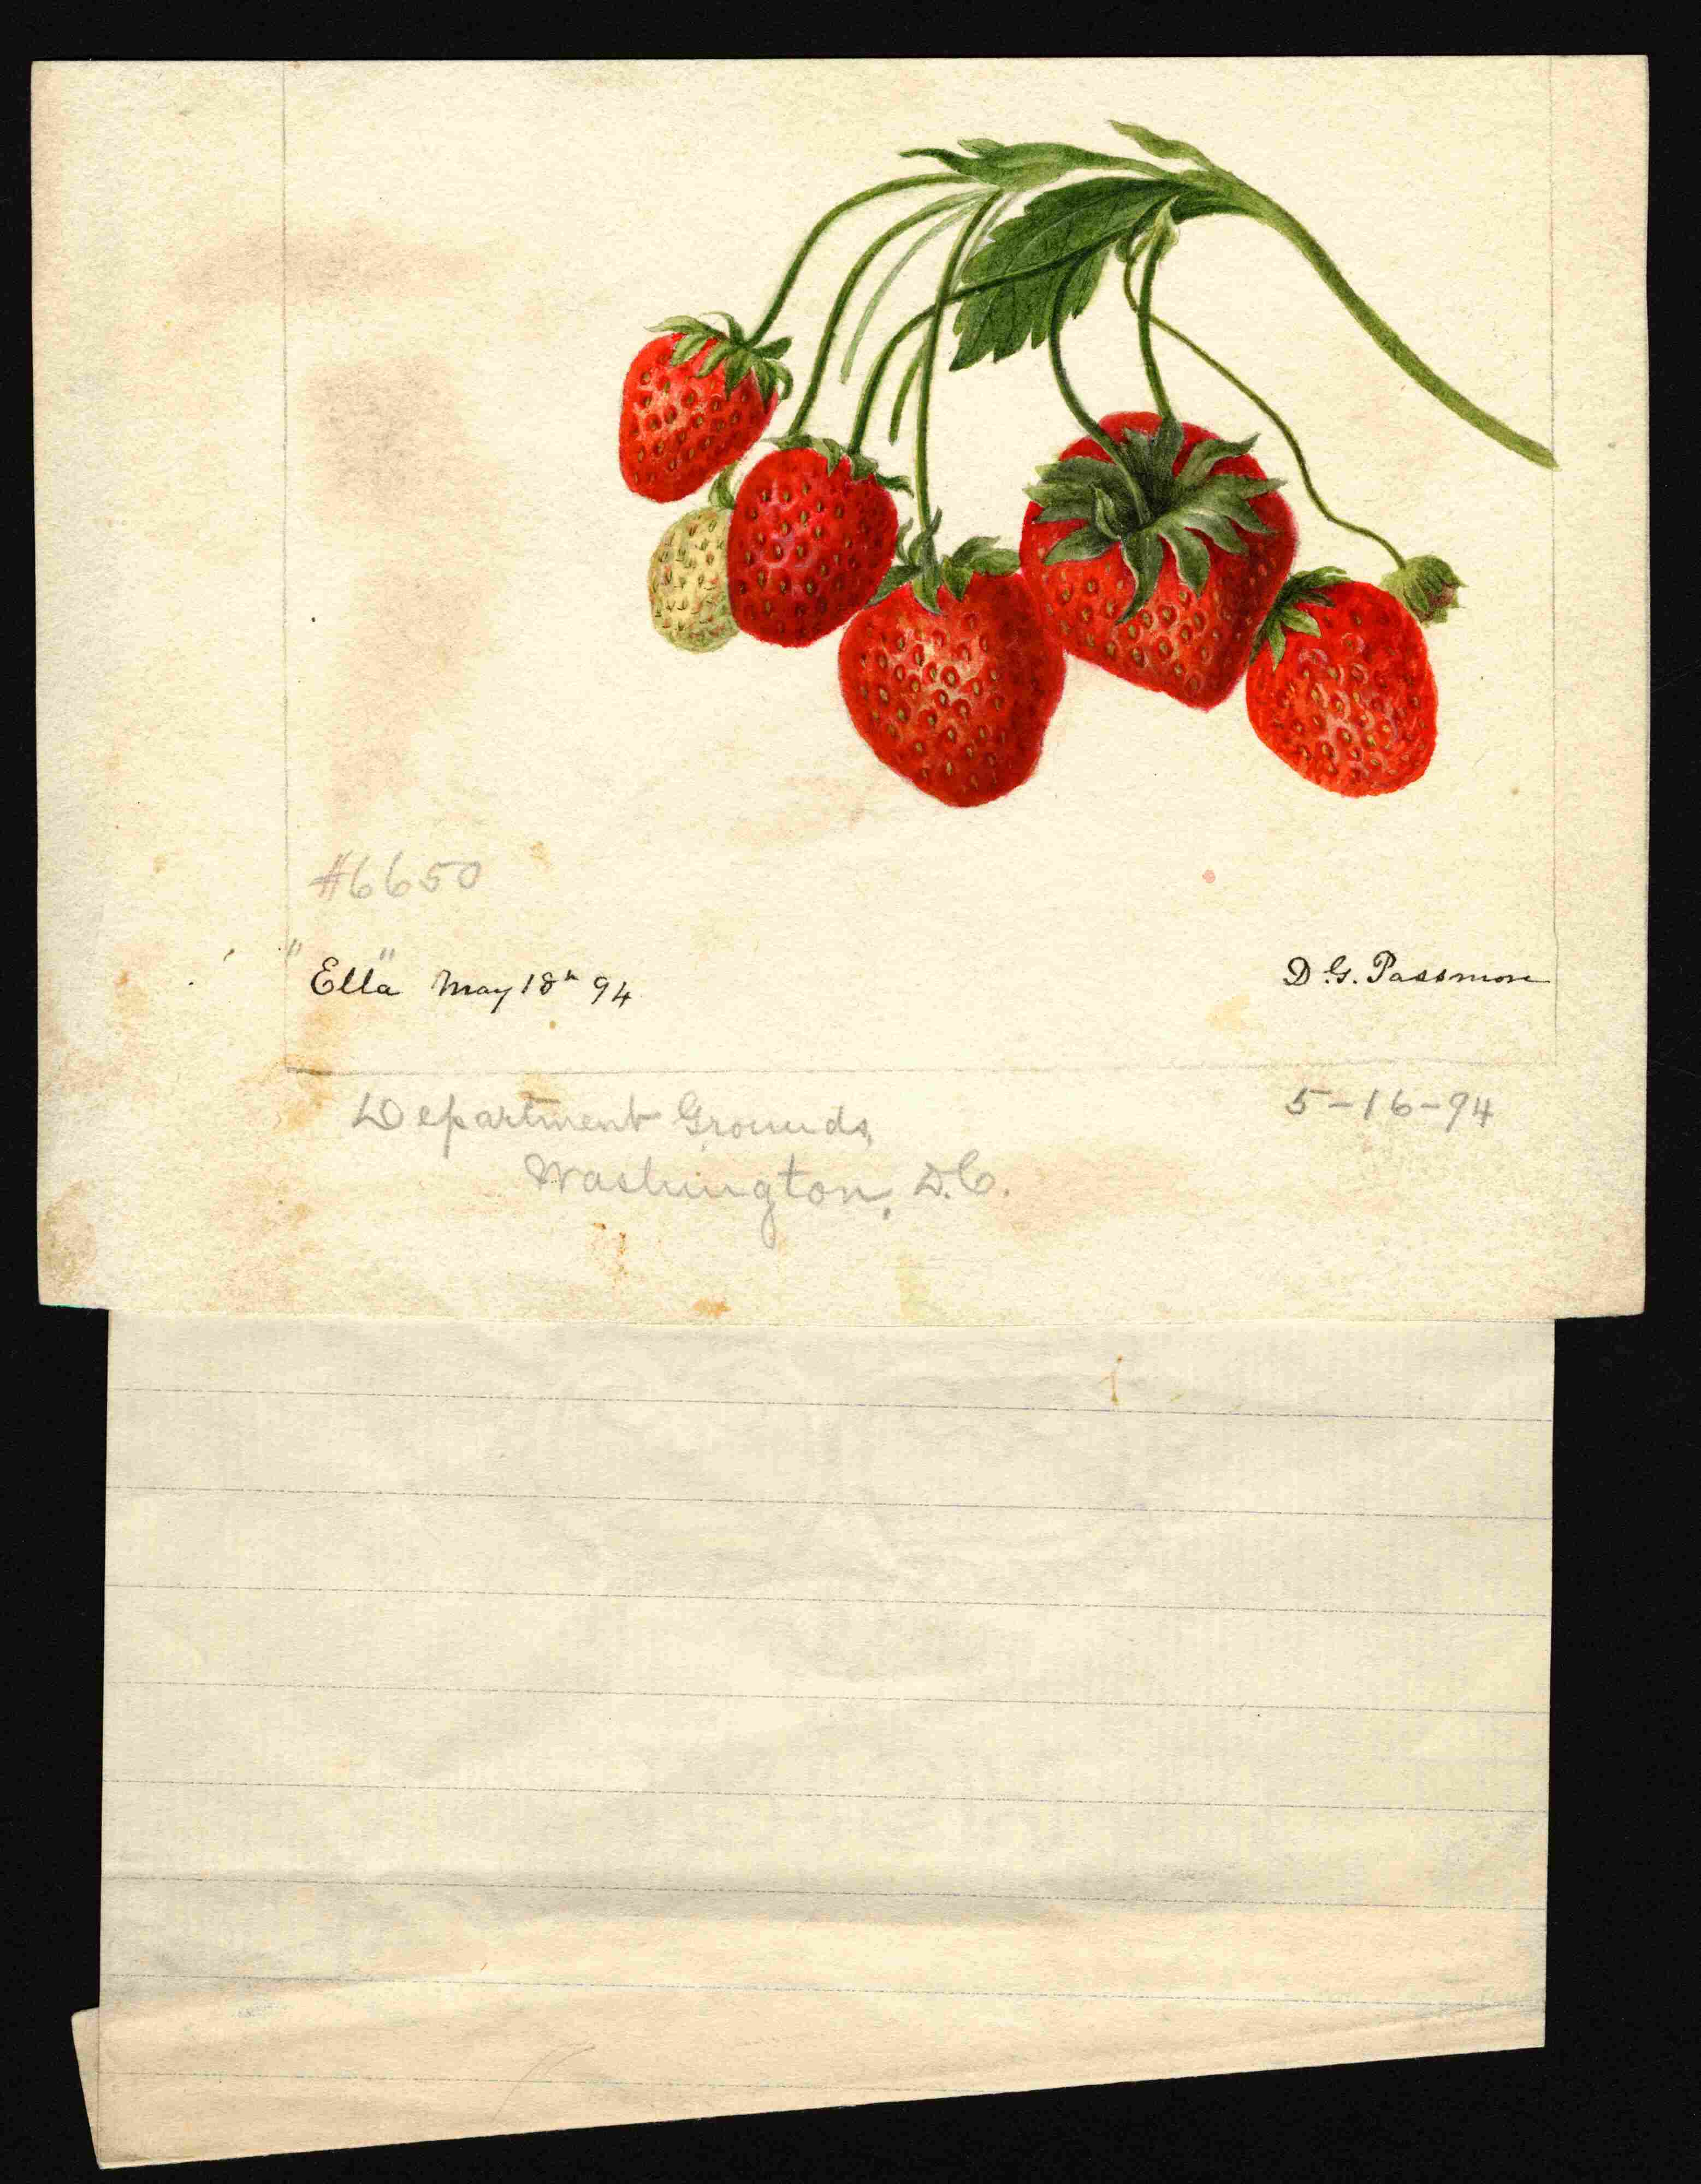 #6650
"Ella" May 18th 94
D. G. Passmore
Department Grounds,
Washington, D.C.
5-16-94